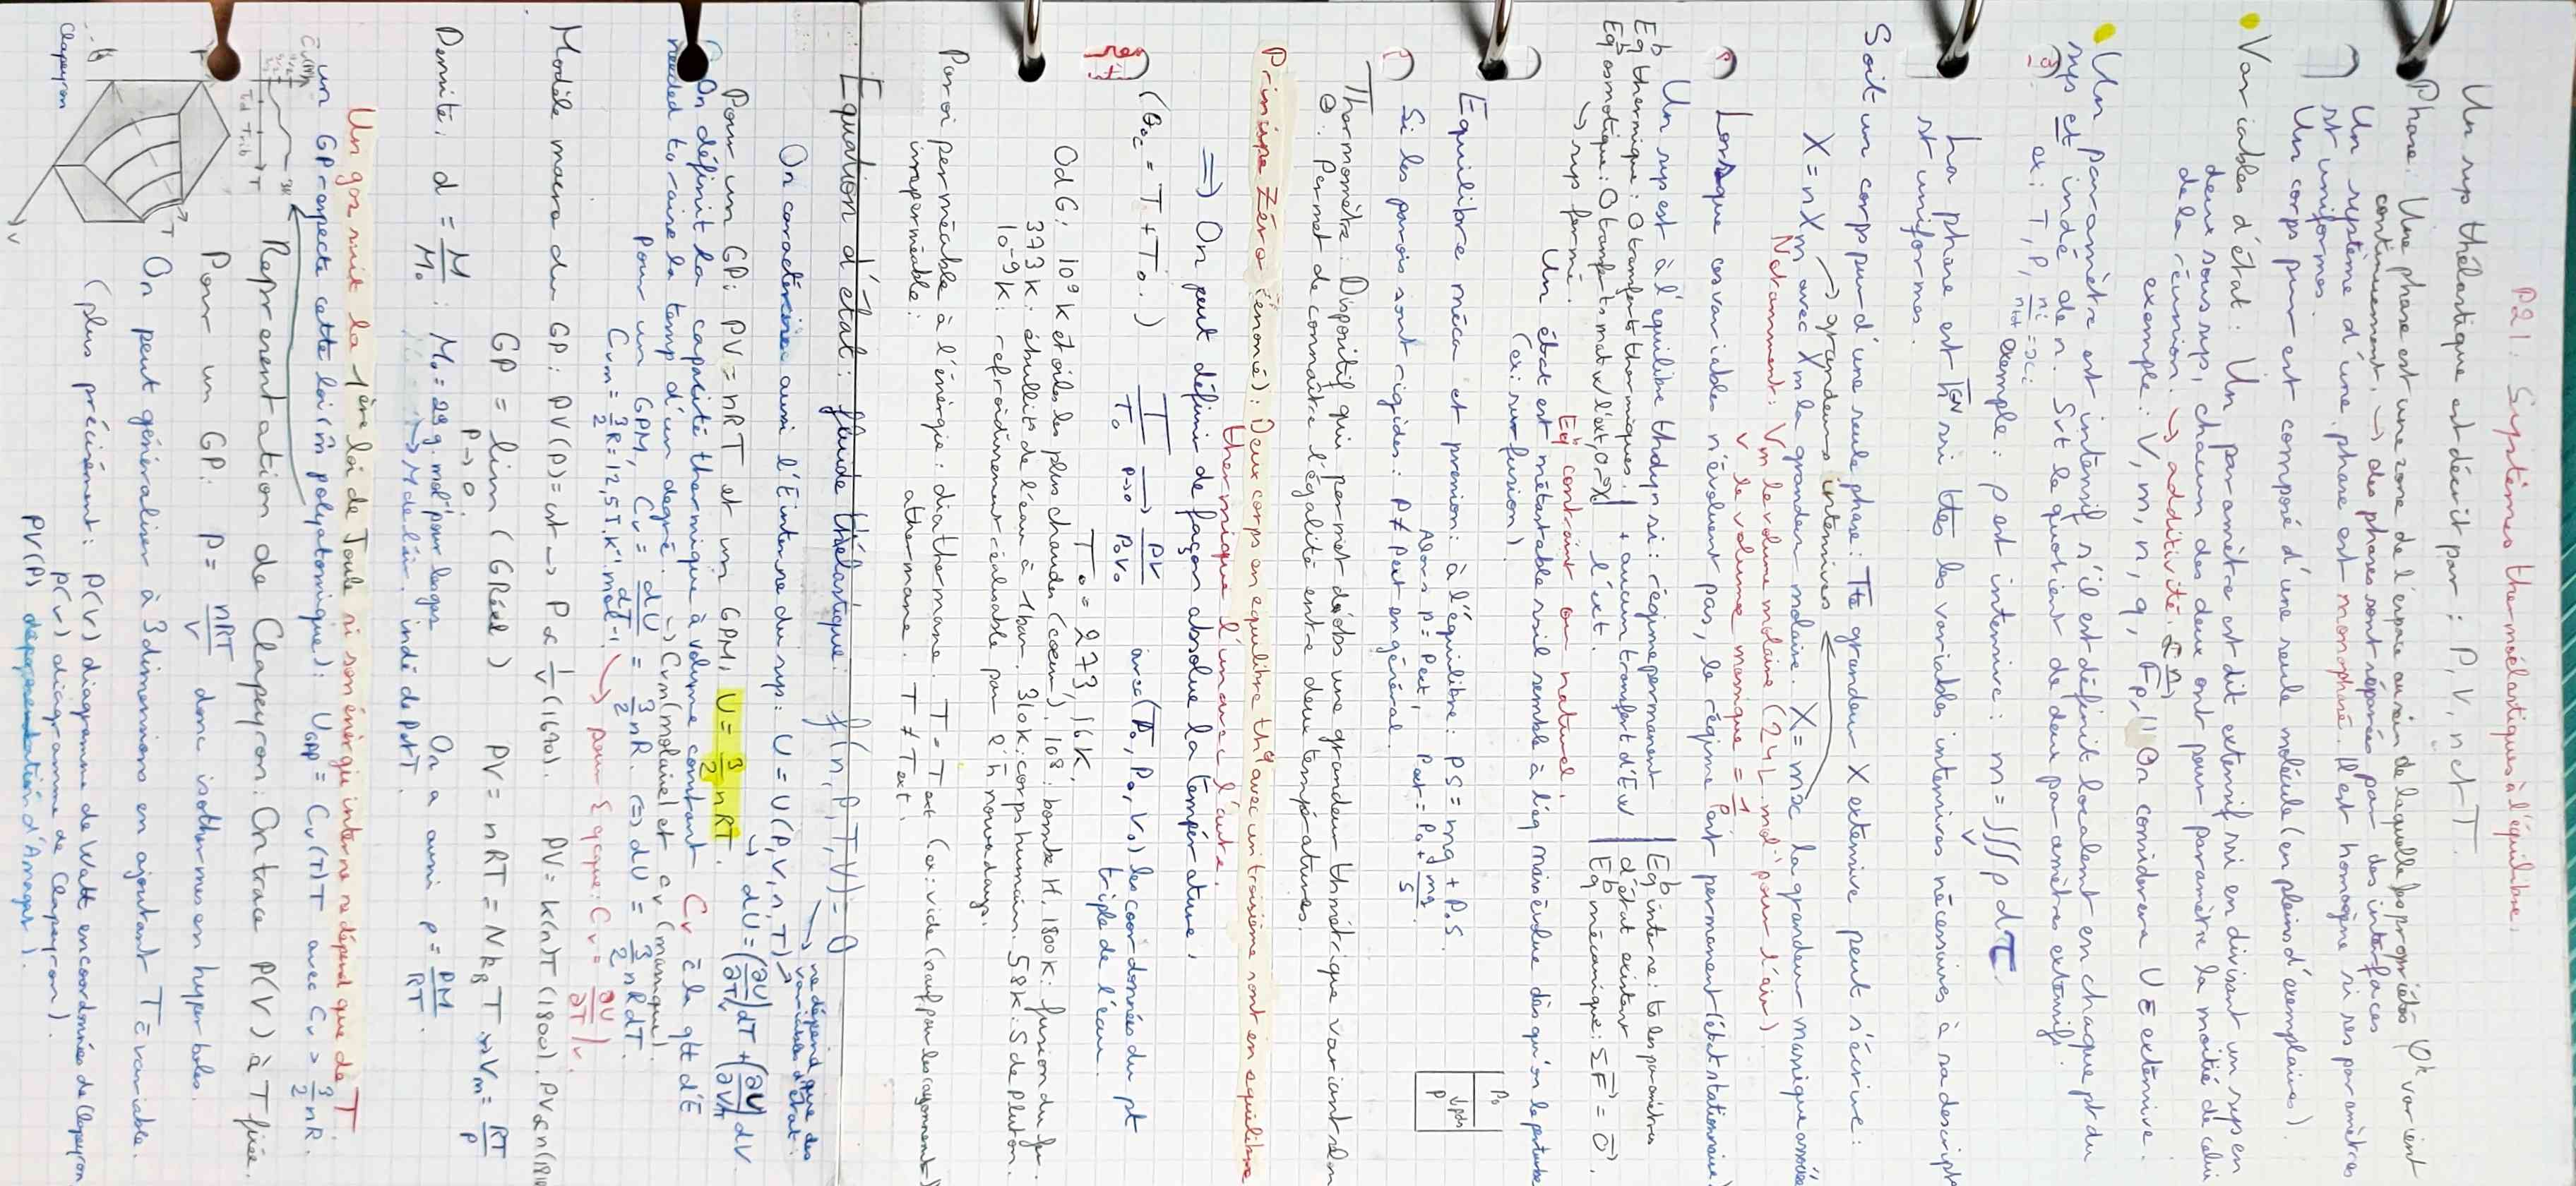 P21: Systèmes thermoélastiques à l'équilibre.
Un sys thélastique est décrit par : P, V, n et T.
Phase: Une phase est une zone de l'espace au sein de laquelle les propriétés φk varient
continuement. → des phases sont séparées par des interfaces
Un système d'une phase est monophasé. Il est homogène si ses paramètres
st uniformes.
Un corps pur est composé d'une seule molécule (en pleins d'exemplaires).
Variables d'état : Un paramètre est dit extensif si en divisant un sys en
deux sous sys, chacun des deux ont pour paramètre la moitié de celui
de la réunion. → additivité.
exemple : V, m, n, q, Ep, // On considerera U ē extensive.
Un paramètre est intensif s'il est définit localement en chaque pt du
sys et indé de n. Svt le quotient de deux paramètres extensifs.
ex: T, P, ni/ntot = xi
exemple : ρ est intensive : m = ∫∫∫ρ dτ
V
La phase est si ttes les variables intensives nécessaires à sa descript
st uniformes.
Soit un corps pur d'une seule phase: Tte grandeur X extensive peut s'écrire :
→ grandeurs intensives
X = nXm avec Xm la grandeur molaire. X = mx la grandeur massique associée
Notamment: Vm le volume molaire (24L.mol⁻¹ pour l'air)
v le volume massique = 1/ρ
Lorsque ces variables n'évoluent pas, le régime est permanent (état stationnaire)
Un sys est à l'équilibre thdyn si : régime permanent
Eqb thermique: 0 transferts thermiques. | + aucun transfert d'E av l'ext. | Eqb interne : ts les paramètres d'état existent
Eqb osmotique: 0 transferts mat av l'ext, | Eqb mécanique: ΣF = 0.
→ sys fermé.
Eq contraint ou naturel.
Un état est métastable s'il semble à l'éq mais évolue dès qu'on le perturbe
(ex: surfusion).
Equilibre méca et pression : à l'équilibre : PS = mg + P₀S.
Alors P = Pext, Pext = P₀ + mg/S.
Si les parois sont rigides : P ≠ Pext en général.
P₀
vide
P
Thermomètre : Dispositif qui permet d'obs une grandeur thmétrique variant selon
θ : Permet de connaître l'égalité entre deux températures.
Principe zéro (énoncé) : Deux corps en equilibre thq avec un troisième sont en equilibre
thermique l'un avec l'autre.
⇒ On peut définir de façon absolue la température,
T/T₀ → PV/P₀V₀ avec (T₀, P₀, V₀) les coordonnées du pt
P→0 triple de l'eau.
(θ°C = T + T₀.) T₀ = 273,16K.
OdG: 10⁹ K étoiles les plus chaudes (coeur). 10⁸ : bombe H. 1800K : fusion du fer.
373K : ébullit° de l'eau à 1 bar. 310K : corps humain. 58K : S de pluton.
10⁻⁹ K : refroidissement réalisable par l'h nowadays.
Paroi perméable à l'énergie : diathermane. T = Text (ex : vide (sauf pour les rayonnements)
imperméable : athermane. T ≠ Text.
Equation d'état : fluide thélastique: f(n, P, T, V) = 0
On caractérise aussi l'E interne du sys : U = U(P, V, n, T) → ne dépend que des
variables d'état.
Pour un GP: PV = nRT et un GPM, U = 3/2 nRT. → dU = (∂U/∂T)v dT + (∂U/∂V)T dV
On définit la capacité thermique à volume constant Cv ē la qtt d'E
needed to raise la temp d'un degré. → Cvm (molaire) et cv (massique)
Pour un GPM, Cv = dU/dT = 3/2 nR. ⇔ dU = 3/2 nRdT.
Cvm = 3/2 R = 12,5 J.K⁻¹.mol⁻¹. → pour Σ qcque: Cv = ∂U/∂T)v.
Modèle macro du GP: PV(P) = cst → P ∝ 1/V (1670). PV = k(n)T (1800). PV ∝ n
GP = lim (GRéel) PV = nRT = NkBT ⇒ Vm = RT/P
P→0
Densité, d = M/M₀ : M₀ = 29 g.mol⁻¹ pour les gaz On a aussi ρ = PM/RT.
→ M de l'air. indé de P et T.
Un gaz suit la 1ère loi de Joule si son énergie interne ne dépend que de T.
un GP respecte cette loi (m̂ polyatomique) : UGPP = Cv(T)T avec Cv > 3/2 nR.
Cv(T)
Td Tvib T
Représentation de Clapeyron: On trace P(V) à T fixée.
Pour un GP: P = nRT/V donc isothermes en hyperboles.
On peut généraliser à 3 dimensions en ajoutant T ē variable.
(plus précisément : P(V) diagramme de Watt en coordonnées de Clapeyron
P(v) diagramme de Clapeyron).
PV(P) représentation d'Amagat).
Clapeyron
T
V